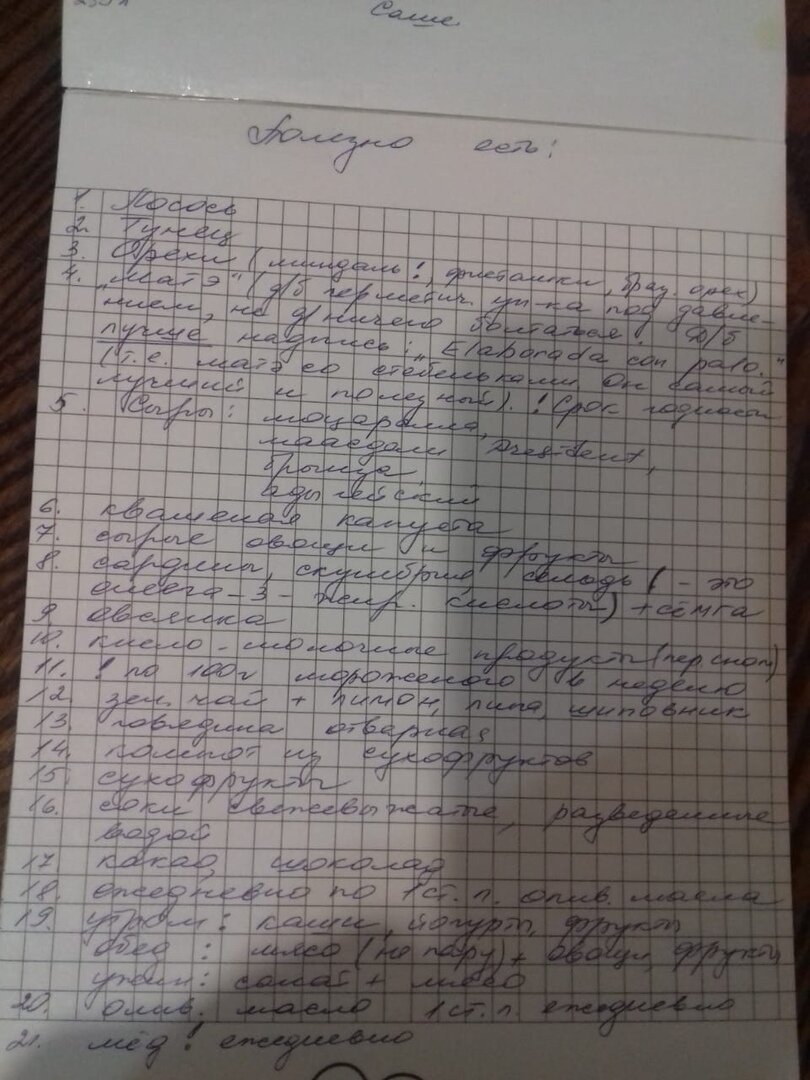 Саше.
Полезно есть:
1. Лосось
2. Тунец
3. Орехи (миндаль!, фисташки, браз. орех)
4. „Матэ" (д/б герметич. уп-ка под давле-
нием, не д/ничего болтаться. Д/б
лучше надпись: „Elaborada con palo."
(т.е. матэ со стебельками. Он самый
лучший и полезный). ! Срок годности
5. Сыры: моцарелла,
маасдам, President,
брынза,
адыгейский
6. квашеная капуста
7. сырые овощи и фрукты
8. сардины, скумбрия, сельдь (- это
омега-3- жир. кислоты) + сёмга
9. овсянка
10. кисло-молочные продукты
11. ! по 100г мороженого в неделю
12. зел. чай + лимон, липа, шиповник
13. говядина отварная
14. компот из сухофруктов
15. сухофрукты
16. соки свежевыжатые, разведенные
водой
17. какао, шоколад
18. ежедневно по 1 ст. л. олив. масла
19. утром: каши, йогурты, фрукты
обед: мясо (на пару) + овощи, фрукты
ужин: салат + мясо
20. олив. масло 1 ст. л. ежедневно
21. мёд! ежедневно